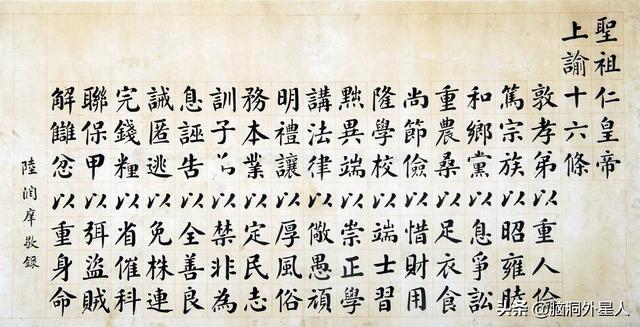 聖祖仁皇帝
上諭十六條
敦孝弟以重人倫
篤宗族以昭雍睦
和鄉黨以息爭訟
重農桑以足衣食
尚節儉以惜財用
隆學校以端士習
黜異端以崇正學
講法律以儆愚頑
明禮讓以厚風俗
務本業以定民志
訓子以禁非為
息誣告以全善良
誡匿逃以免株連
完錢糧以省催科
聯保甲以弭盜賊
解讎忿以重身命
陸潤庠敬錄
头条 @脑洞外星人